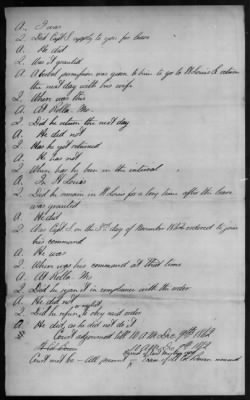 A. I was
Q. Did Capt S. apply to you for leave
A. He did
Q. Was it granted
A. A verbal permission was given to him to go to St Louis & return
the next day with his wife
Q. Where was this
A. At Rolla. Mo.
Q. Did he return the next day
A. He did not
Q. Has he yet returned
A. He has not
Q. Where has he been in the interval
A. In St Louis
Q. Did he remain in St Louis for a long time after the leave
was granted
A. He did
Q. Was Capt S. on the day of November 1862 ordered to join
his command
A. He was
Q. Where was his command at that time
A. At Rolla. Mo
Q. Did he join it in compliance with the order
A. He did not
Q. Did he refuse or neglect to obey said order
A. He did, as he did not do it
Court adjourned till 10 A M Dec 9th 1862
Court met &c - All present